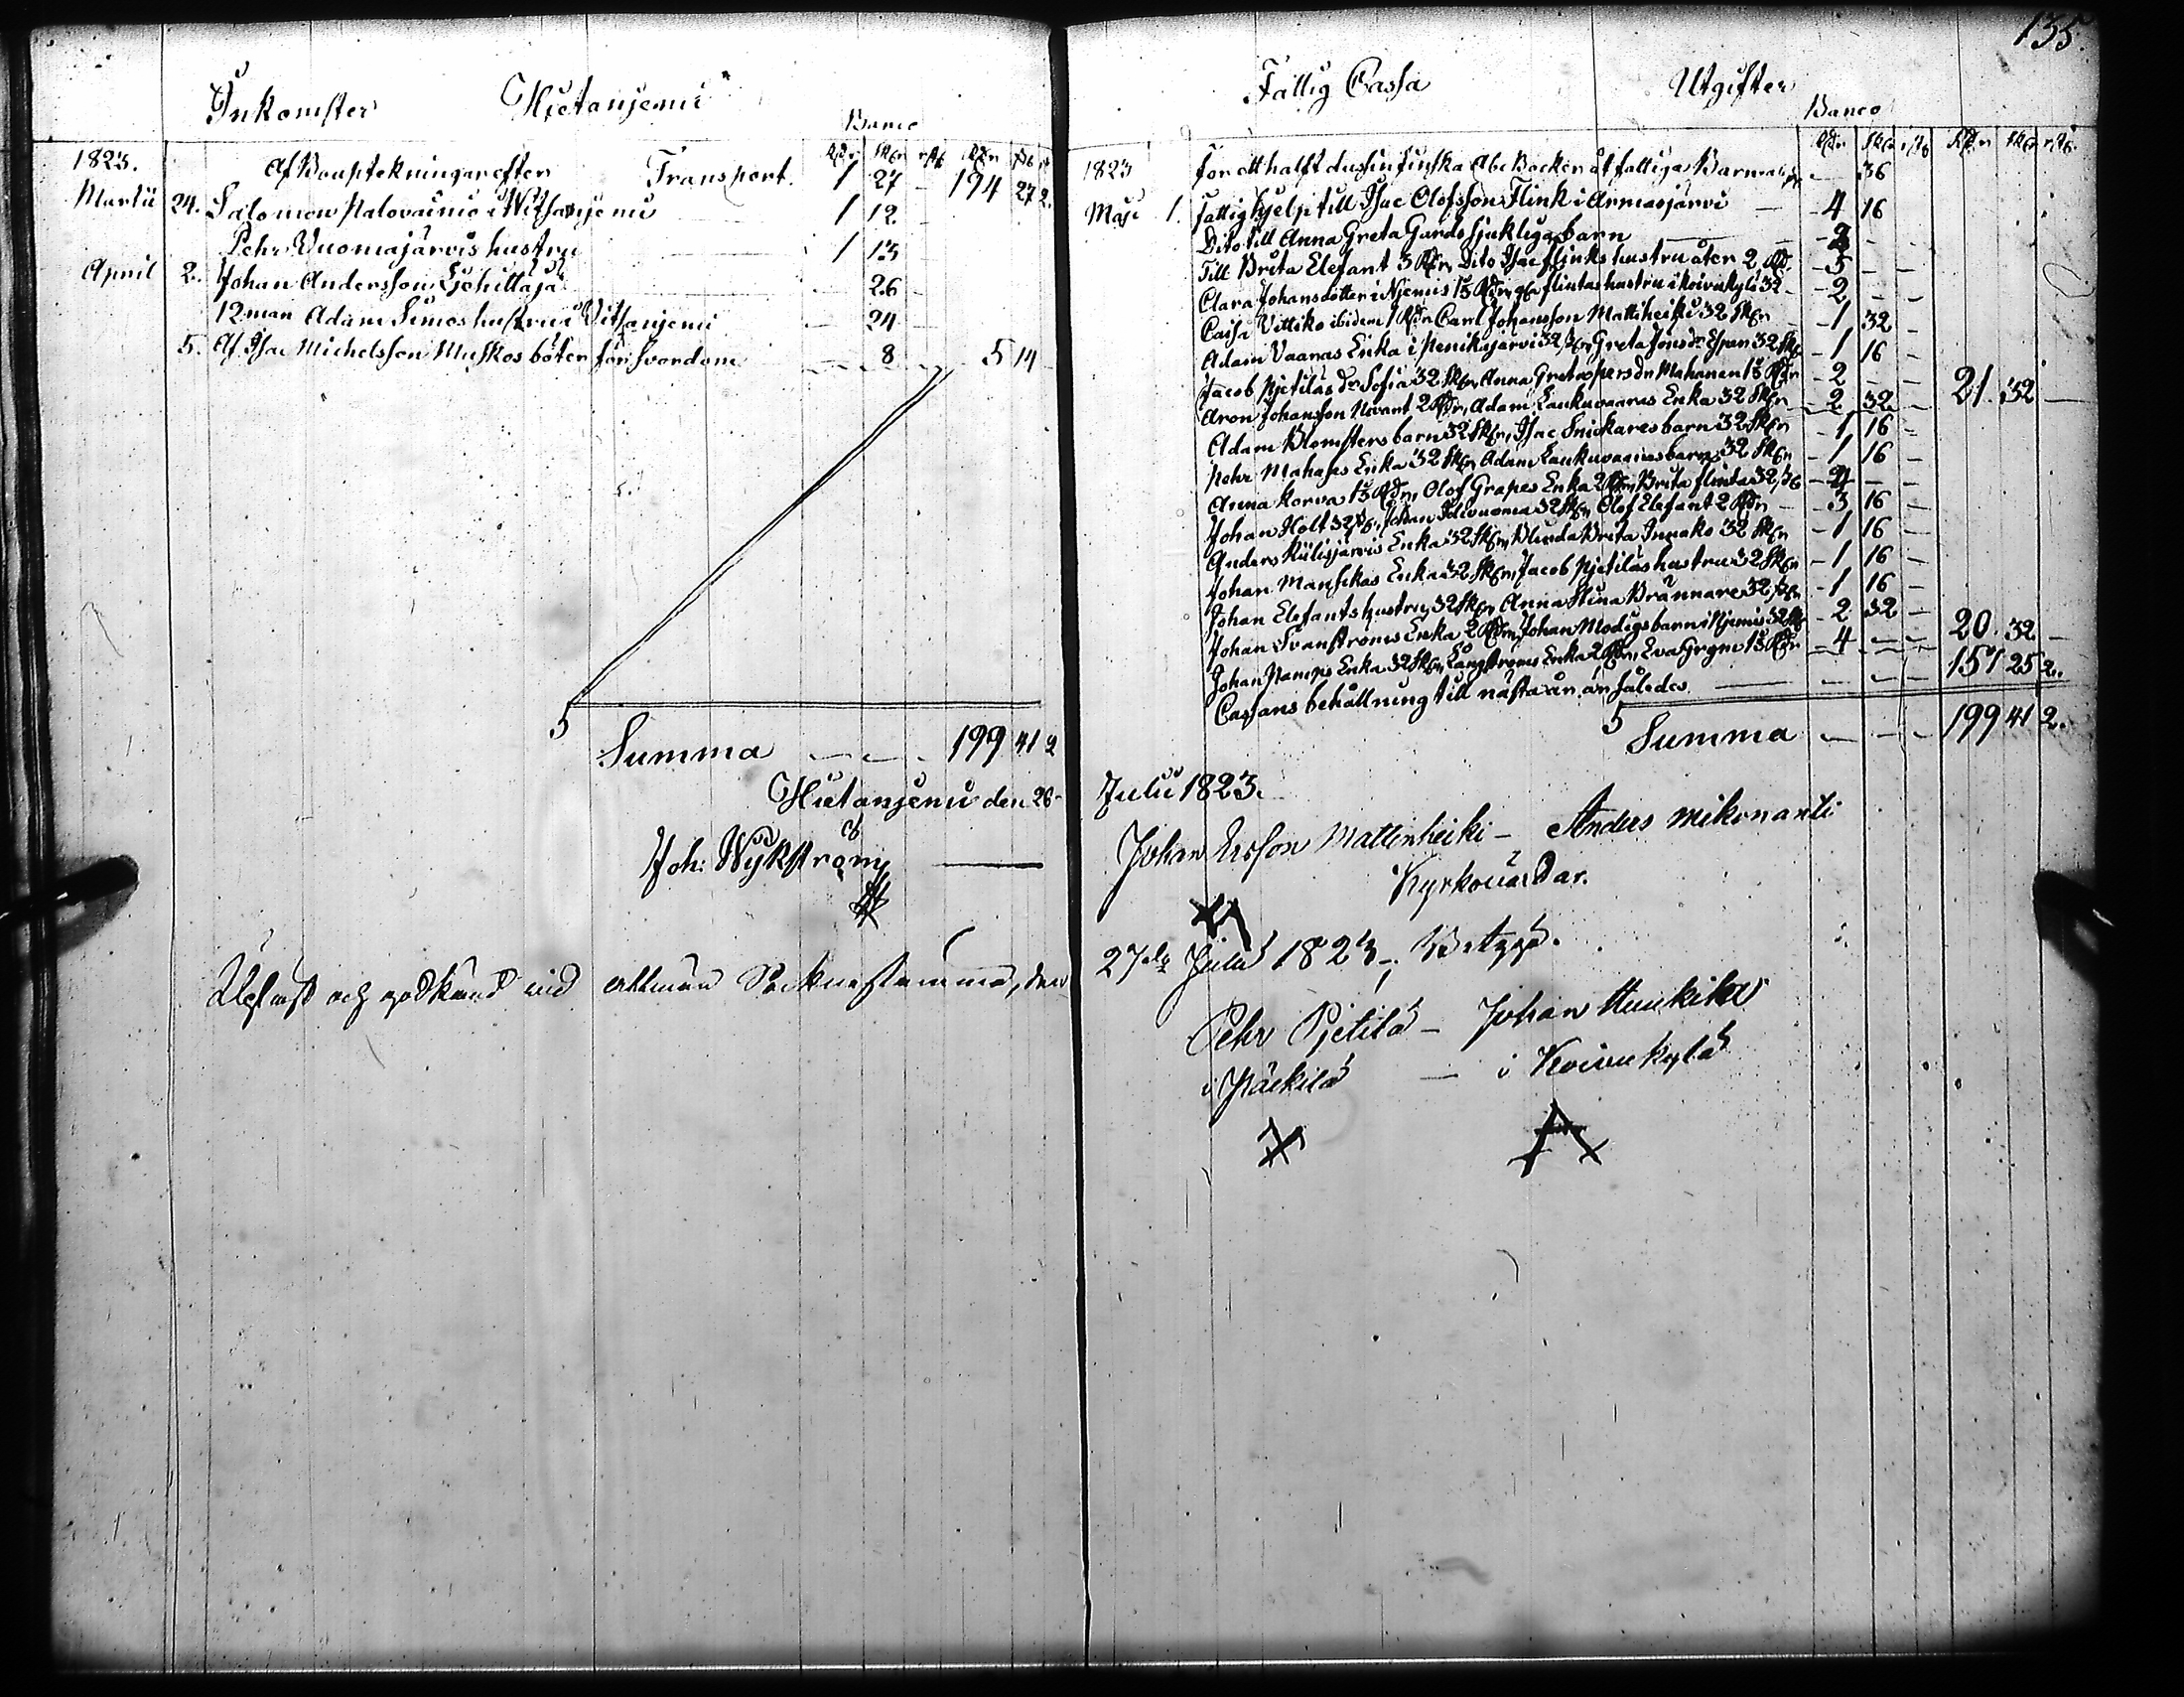 135.
Inkomster Hietaniemi
Banco
Rdr Skr rst Rdr Sk r
1823. Af Bouptekningar efter Transport. 1 27 - 194 27 2.
Martii 24. Salomon Palovainio i Witsanjemi 1 12 -
Pehr Vuomajärvis hustru 1 13 -
April 2. Johan Andersson 26 -
12 man Adam Simos hustru i Vitsanjemi 24 -
5. Af Isac Michelsson Muskos böter för svordom 8 - 5 14 -
5
Summa 199 41 2
Hietaniemi den 26
Joh: Wykström
Upläst och godkänd vid allmän Sockenstämma, den
Fattig Cassa Utgifter
Banco
Rdr Skr rst Rdr Skr rst
1823 För ett halft dusin finska Abc Böcker åt fattiga Barn 36
Maji 1. Fattighjelp till Isac Olofsson Flink i Armasjärvi 4 16
Dito till Anna Greta Gurds sjukliga barn
Till Brita Elefant 3 Rdr, Dito Isac Flinks hustru åter 2 Rd. 5 - -
Clara Johansdotter i Njemis 1 hustru i Koivukylä 32 - 2 - -
Caisa Vittiko ibidem 1 Rdr Carl Johansson Mattiheiki 32 Skr 1 32 -
Adam Vaaras Enka i Penikajärvi 32 Skr, Greta Jonsdr Espan 32 Skr 1 16 -
Jacob Pjetiläs dr Sofia 32 Skr, Anna Greta Persdr Mahanen 1 Rdr 2 - -
Aron Johansson 2 Rdr, Adam Laukuvaaras Enka 32 Skr 2 32 - 21 32 -
Adam Blomsters barn 32 Skr, Isac Snickares barn 32 Skr 1 16 -
Pehr Mahas Enka 32 Skr Adam Laukuvaaras barn 32 Skr 1 16 -
Anna Korva 1 Rdr, Olof Grapes Enka 2 Rdr, Brita Flintas 32 4 - -
Johan Holt 32 Skr, Johan 32 Skr, Olof Elefant 2 Rdr 3 16 -
Anders Külisjärvis Enka 32 Skr, Blinda Brita 32 Skr 1 16 -
Johan Mansikas Enka 32 Skr, Jacob Pjetiläs hustru 32 Skr 1 16 -
Johan Elefants hustru 32 Skr, Anna Stina Brännare 32 Skr 1 16 -
Johan Svanströms Enka 2 Rdr, Johan Modigs barn i Njemis 32 Skr 2 32 - 20 32 -
Johan Enka 32 Skr, Långströms Enka 2 Rdr, Eva 4 - -
Cassans behållning till nästa år är således 157 25 2.
5
Summa 199 41 2.
Julii 1823.
Johan Ersson Mattinheiki - Anders Mikonanti
Kyrkovärdar.
27de Julii 1823.
Pehr Pjetilä - Johan Hunkika
i Päckilä - i Koivukylä